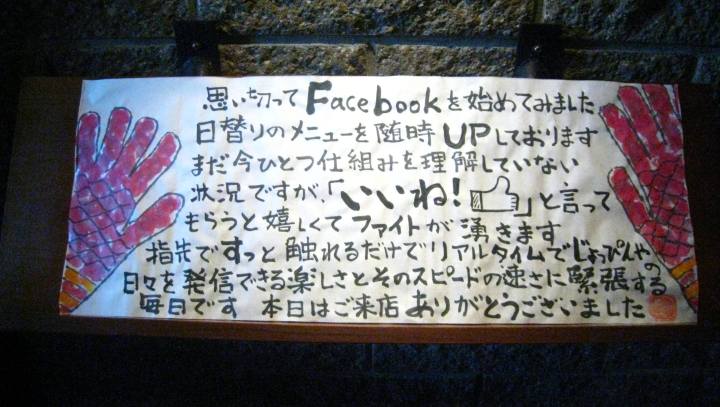 思い切ってFacebookを始めてみました
日替りのメニューを随時UPしております
まだ今ひとつ仕組みを理解していない
状況ですが、「いいね!」と言って
もらうと嬉しくてファイトが湧きます
指先ですっと触れるだけでリアルタイムでじょっぴんやの
日々を発信できる楽しさとそのスピードの速さに緊張する
毎日です 本日はご来店ありがとうございました